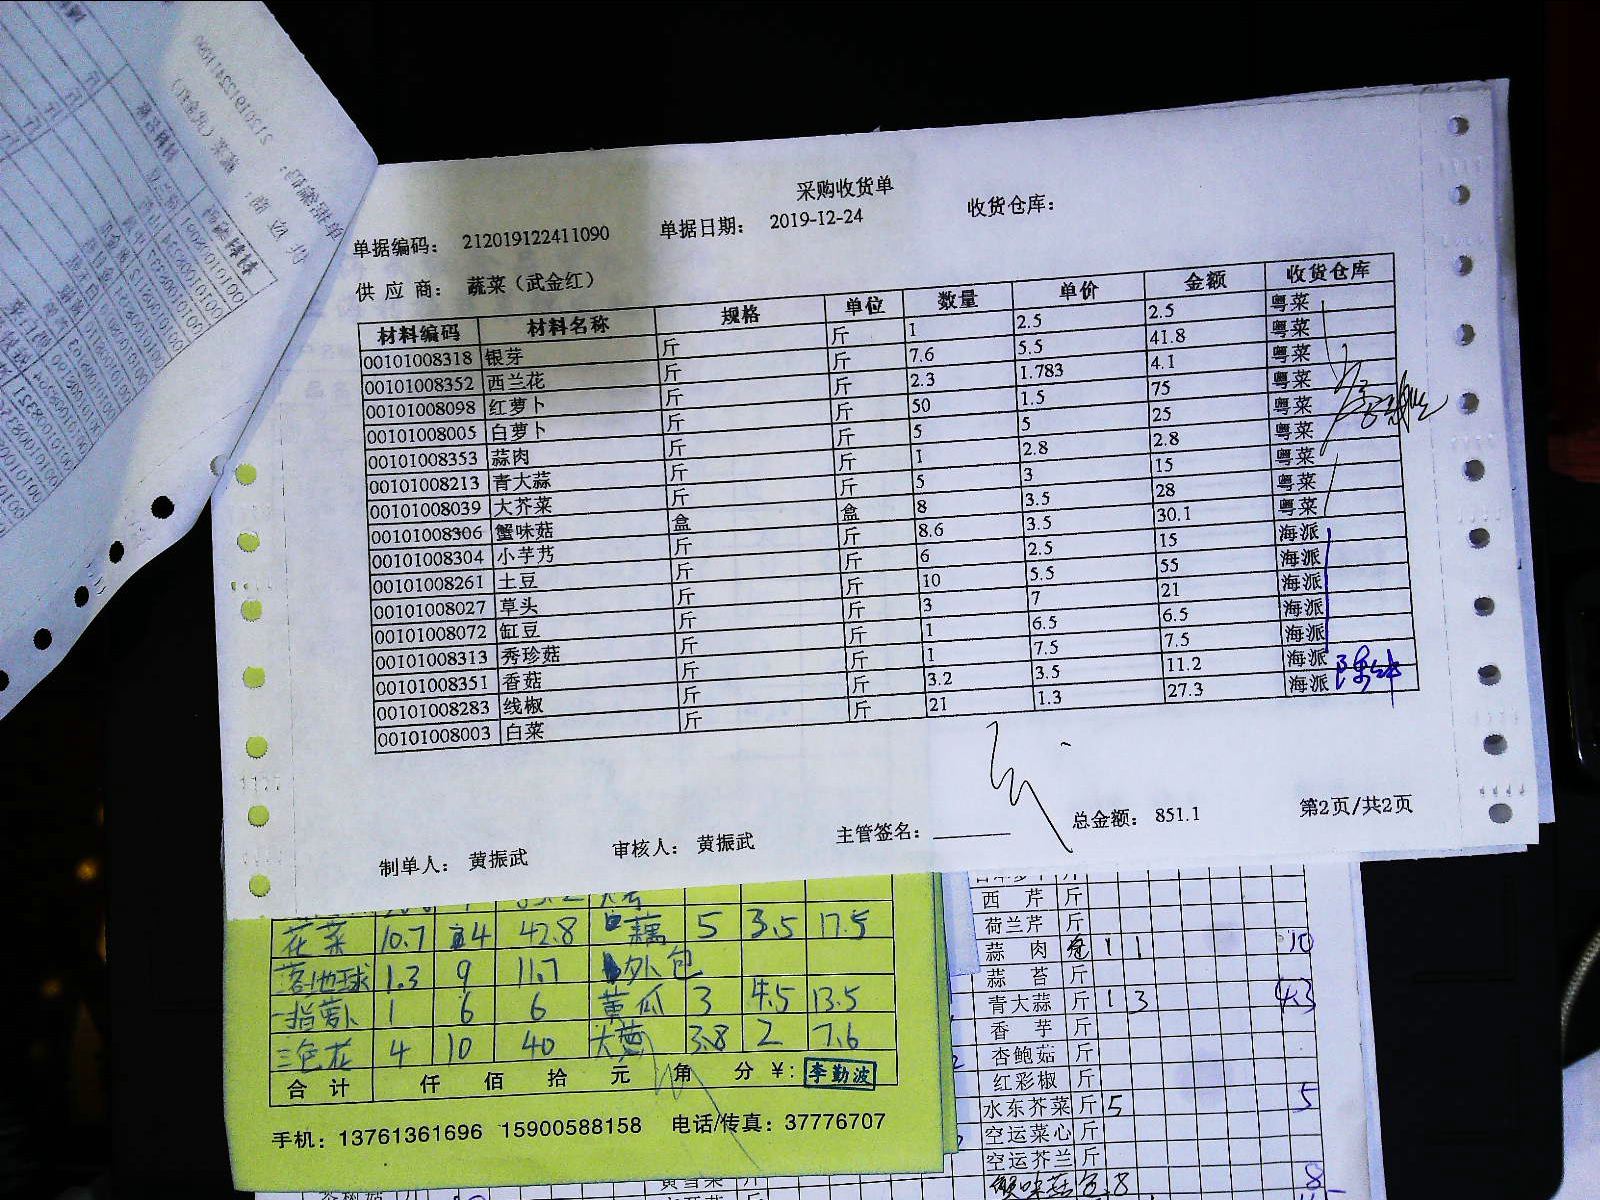 采购收货单
单据编码: 212019122411090 单据日期: 2019-12-24 收货仓库:
供 应 商: 蔬菜(武金红)
材料编码 材料名称 规格 单位 数量 单价 金额 收货仓库
00101008318 银芽 斤 斤 1 2.5 2.5 粤菜
00101008352 西兰花 斤 斤 7.6 5.5 41.8 粤菜
00101008098 红萝卜 斤 斤 2.3 1.783 4.1 粤菜
00101008005 白萝卜 斤 斤 50 1.5 75 粤菜
00101008353 蒜肉 斤 斤 5 5 25 粤菜
00101008213 青大蒜 斤 斤 1 2.8 2.8 粤菜
00101008039 大芥菜 斤 斤 5 3 15 粤菜
00101008306 蟹味菇 盒 盒 8 3.5 28 粤菜
00101008304 小芋艿 斤 斤 8.6 3.5 30.1 海派
00101008261 土豆 斤 斤 6 2.5 15 海派
00101008027 草头 斤 斤 10 5.5 55 海派
00101008072 缸豆 斤 斤 3 7 21 海派
00101008313 秀珍菇 斤 斤 1 6.5 6.5 海派
00101008351 香菇 斤 斤 1 7.5 7.5 海派
00101008283 线椒 斤 斤 3.2 3.5 11.2 海派
00101008003 白菜 斤 斤 21 1.3 27.3 海派
制单人: 黄振武 审核人: 黄振武 主管签名: 总金额: 851.1 第2页/共2页
花菜 10.7 4 42.8 藕 5 3.5 17.5
落地球 1.3 9 11.7 外包
一指萝卜 1 6 6 黄瓜 3 4.5 13.5
三色花 4 10 40 大葱 3.8 2 7.6
合 计 仟 佰 拾 元 角 分 ¥: 李勤波
手机: 13761361696 15900588158 电话/传真: 37776707
西 芹 斤
荷兰芹 斤
蒜 肉 包 1 1 10
蒜 苔 斤
青大蒜 斤 1 3
香 芋 斤
杏鲍菇 斤
红彩椒 斤
水东芥菜 斤 5 5
空运菜心 斤
空运芥兰 斤
蟹味菇 包 8 8